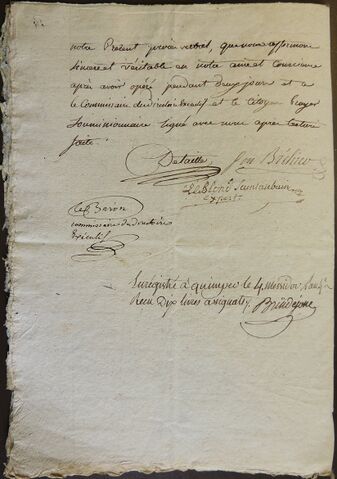 notre Present procès verbal, que nous affirmons
sincere et véritable en notre ame et conscience
après avoir opéré pendant deux jours et a
le Commissaire du directoire Executif et le citoyen
Soumissionnaire signé avec nous après lecture
faite.
Detaille
Le Blond Saintaubain
expert
Le Baron
commissaire du directoire
Exécutif
Enregistré à quimper le 4 messidor l'an 4e
Recu Dix livres assignats